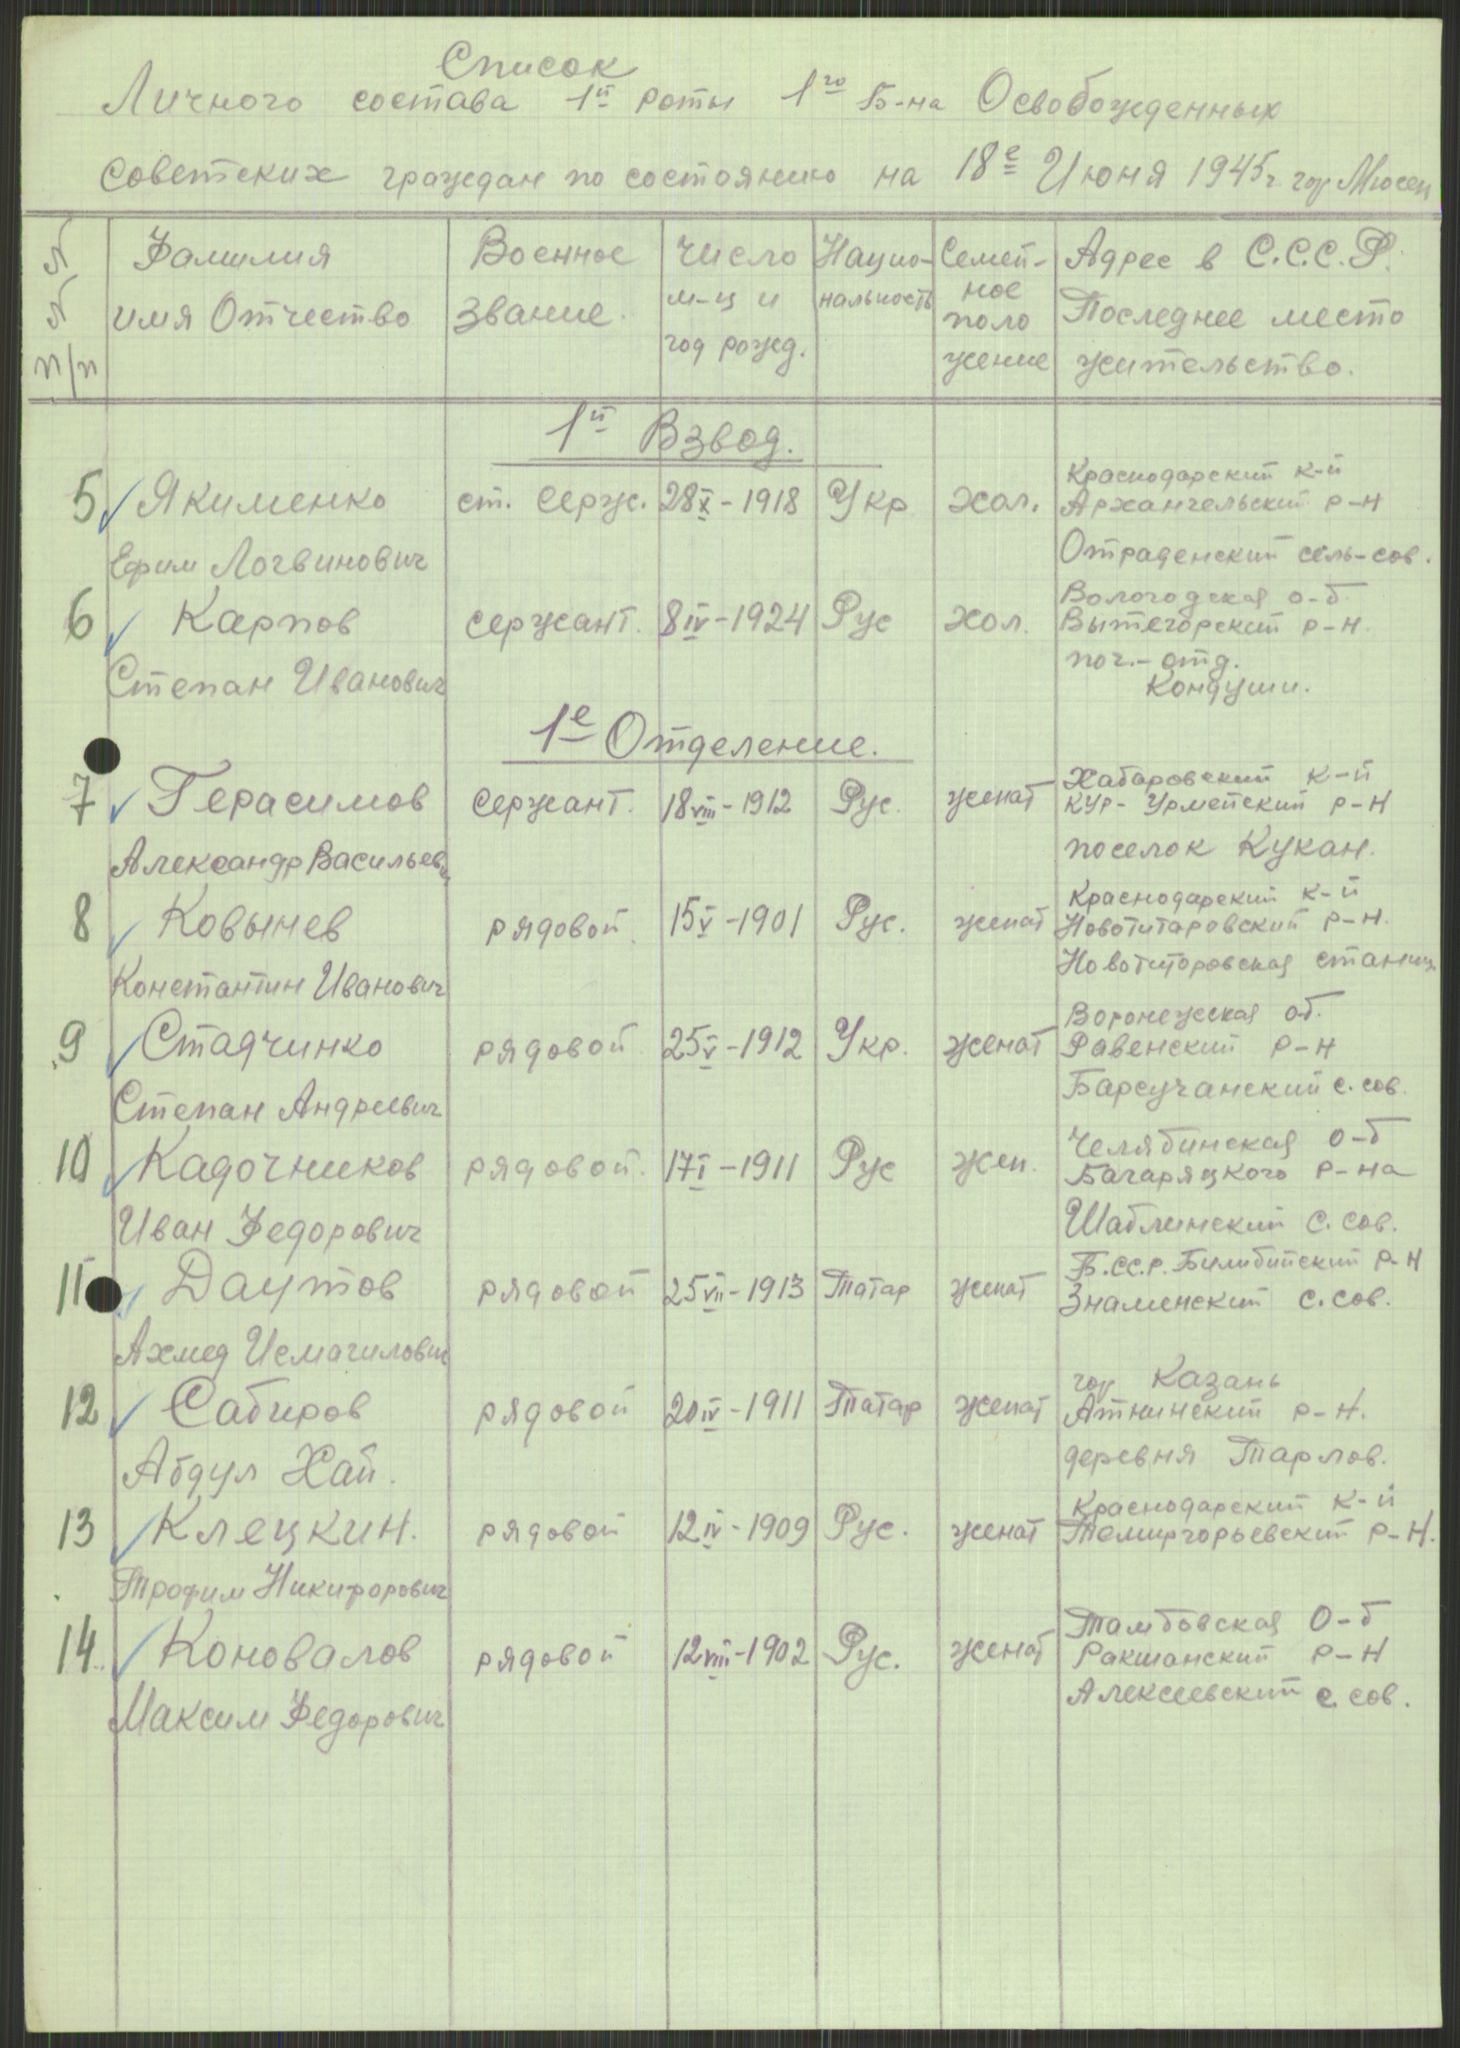 Список
Личного состава 1й роты 1го Б-на Освобожденных
советских граждан по состоянию на 18е Июня 1945г. гор Мюсен
№ № п/п | Фамилия имя Отчество | Военное звание. | Число м-ц и год рожд. | Нацио-нальность | Семей-ное поло жение | Адрес в С.С.С.Р. Последнее место жительство.
1й Взвод.
5 Якименко Ефим Логвинович | ст. серж. | 28 X - 1918 | Укр | хол. | Краснодарский к-й
Архангельский р-н
Отраденский сель-сов.
6 Карпов Степан Иванович | сержант. | 8 IV - 1924 | Рус | хол. | Вологодская о-б.
Вытегорский р-н.
поч.-отд.
Кондуши.
1е Отделение.
7 Герасимов Александр Васильев | сержант. | 18 VIII - 1912 | Рус. | женат | Хабаровский к-й
Кур-Урмейский р-н
поселок Кукан.
8 Ковынев Константин Иванович | рядовой. | 15 V - 1901 | Рус. | женат | Краснодарский к-й
Новотитаровский р-н.
Новотиторовская станиц
9 Стадчинко Степан Андреевич | рядовой | 25 V - 1912 | Укр. | женат | Воронежская об.
Равенский р-н
Барсучанский с. сов.
10 Кадочников Иван Федорович | рядовой. | 17 I - 1911 | Рус | жен. | Челябинская о-б
Багаряцкого р-на
Шаблинский с. сов.
11 Даутов Ахмед Исмагилович | рядовой | 25 VII - 1913 | Татар | женат | Б.сс.р. Билибийский р-н
Знаменский с. сов.
12 Сабиров Абдул Хай. | рядовой | 20 IV - 1911 | Татар | женат | гор Казань
Атнинский р-н.
деревня Тарлов.
13 Клецкин. Трофим Никифорович | рядовой | 12 IV - 1909 | Рус. | женат | Краснодарский к-й
Темиргорьевский р-н.
14. Коновалов Максим Федорович | рядовой | 12 VIII - 1902 | Рус. | женат | Тамбовская о-б
Ракшанский р-н
Алексеевский с. сов.